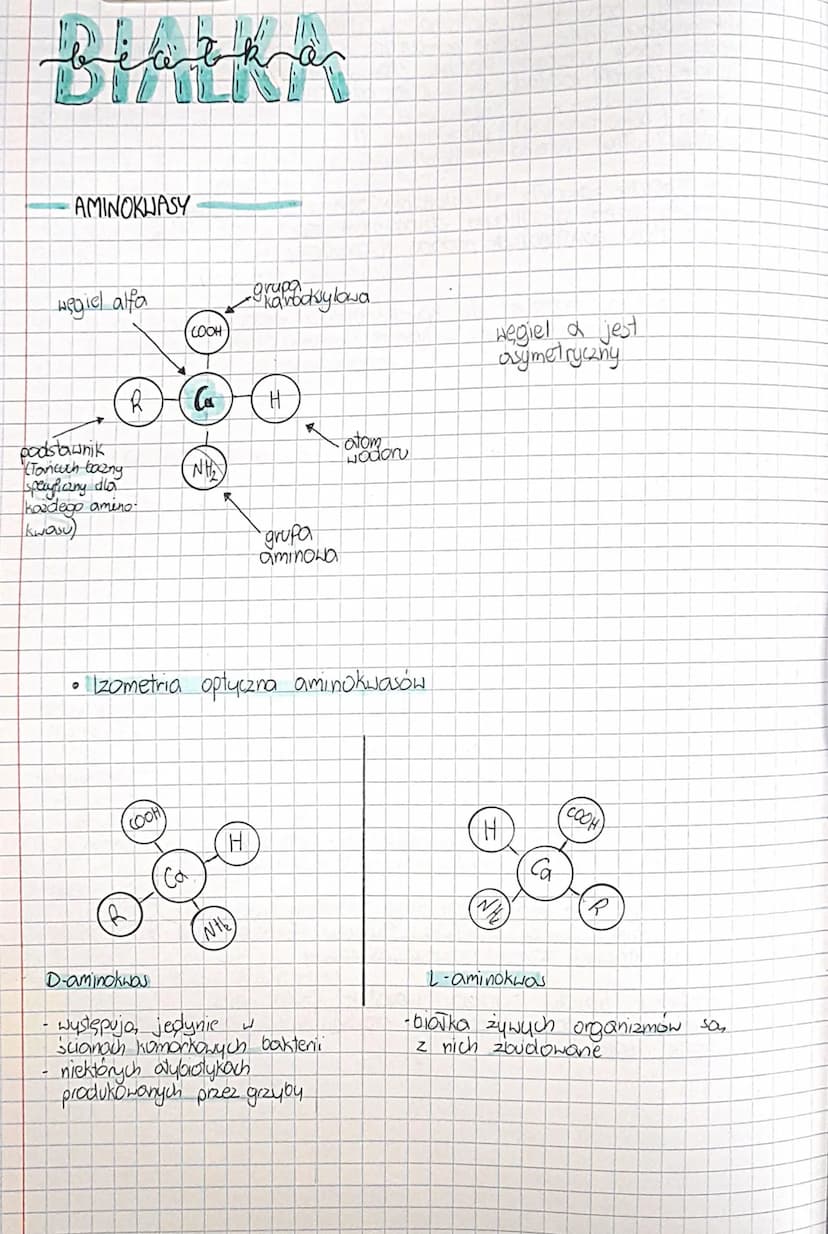 BIAŁKA
białka
AMINOKWASY
węgiel alfa
grupa
karboksylowa
COOH
R
Cα
H
NH₂
podstawnik
(łańcuch boczny
specyficzny dla
każdego amino-
kwasu)
atom
wodoru
grupa
aminowa
węgiel α jest
asymetryczny
• Izometria optyczna aminokwasów
COOH
H
Cα
R
NH₂
D-aminokwas
- występują jedynie w
ścianach komórkowych bakterii
- niektórych atybiotykach
produkowanych przez grzyby
H
COOH
Cα
NH₂
R
L-aminokwas
- białka żywych organizmów są
z nich zbudowane